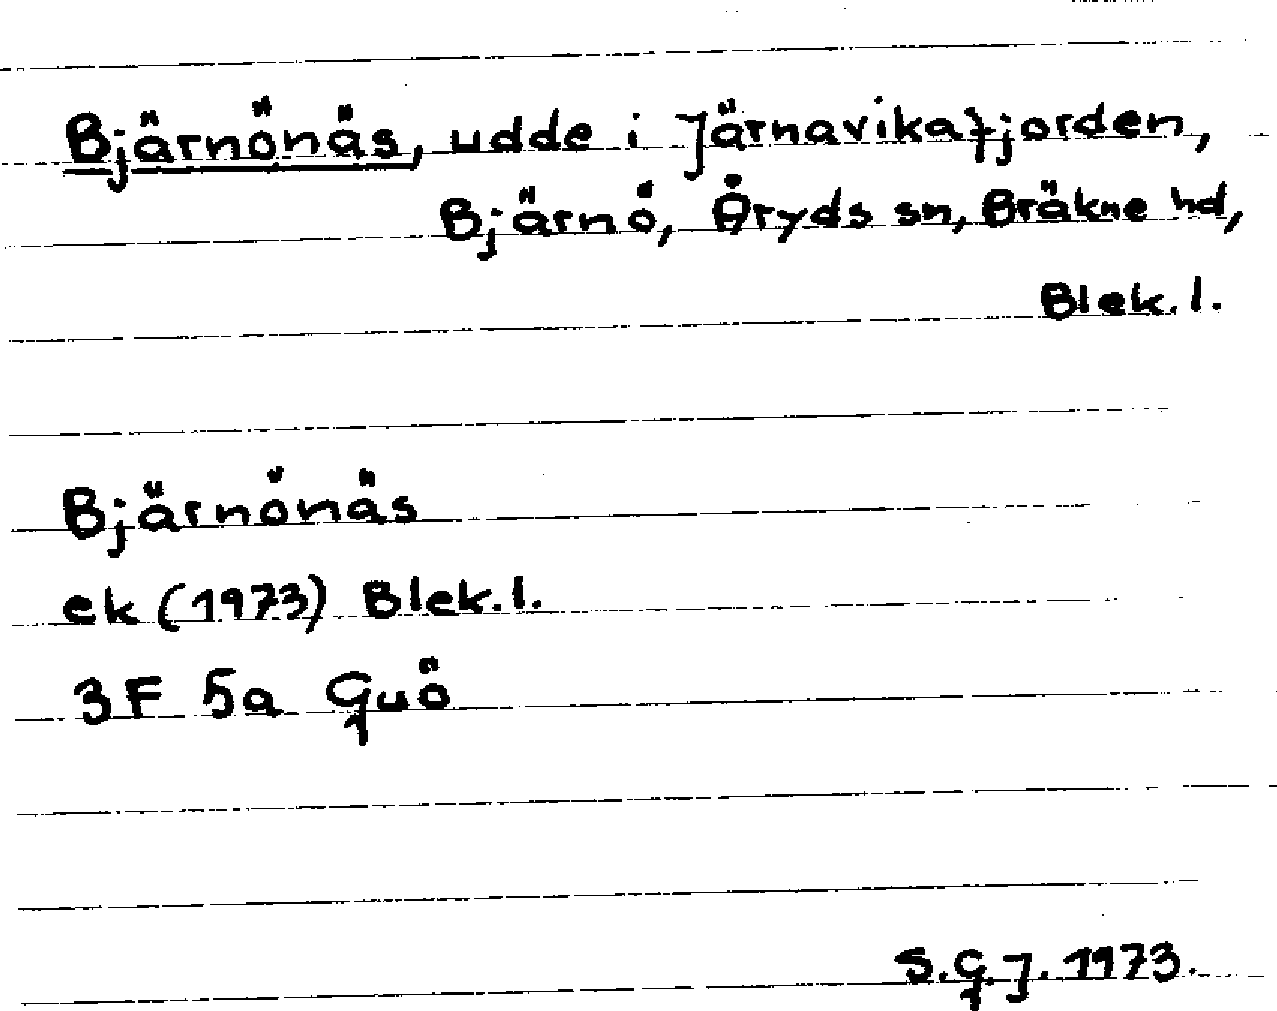 Bjärnönäs, udde i Järnavikafjorden,
Bjärnö, Åryds sn, Bräkne hd,
Blek. l.
Bjärnönäs
ek (1973) Blek. l.
3F 5a Guö
S.G.J. 1973.